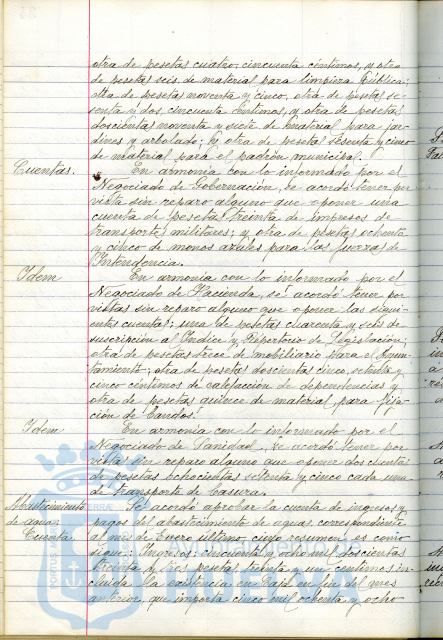 otra de pesetas cuatro, cincuenta céntimos, y otra
de pesetas seis de material para limpieza pública;
otra de pesetas noventa y cinco, otra de pesetas se-
senta y dos, cincuenta céntimos, y otra de pesetas
doscientas noventa y siete de material para jar-
dines y arbolado; y otra de pesetas sesenta y cinco
de material para el padrón municipal.
Cuentas. En armonía con lo informado por el
Negociado de Gobernación, se acordó tener por
vista sin reparo alguno que oponer una
cuenta de pesetas treinta de impresos de
transportes militares; y otra de pesetas ochenta
y cinco de monos azules para las fuerzas de
Intendencia.
Idem En armonía con lo informado por el
Negociado de Hacienda, se acordó tener por
vistas sin reparo alguno que oponer las siguien-
entes cuentas: una de pesetas cuarenta y seis de
suscripción al Indice y Repertorio de Legislación;
otra de pesetas trece de mobiliario para el Ayun-
tamiento; otra de pesetas doscientas cinco, setenta y
cinco céntimos de calefacción de dependencias y
otra de pesetas quince de material para fija-
ción de bandos.
Idem En armonía con lo informado por el
Negociado de Sanidad, se acordó tener por
vistas sin reparo alguno que oponer dos cuentas
de pesetas ochocientas setenta y cinco cada una
de transporte de basura.
Abastecimiento Se acordó aprobar la cuenta de ingresos y
de aguas pagos del abastecimiento de aguas, correspondiente
Cuenta. al mes de Enero último cuyo resumen es como
sigue: Ingresos: cincuenta y ocho mil doscientas
treinta y tres pesetas treinta y un céntimos in-
cluida la existencia en Caja en fin del mes
anterior, que importa cinco mil ochenta y ocho